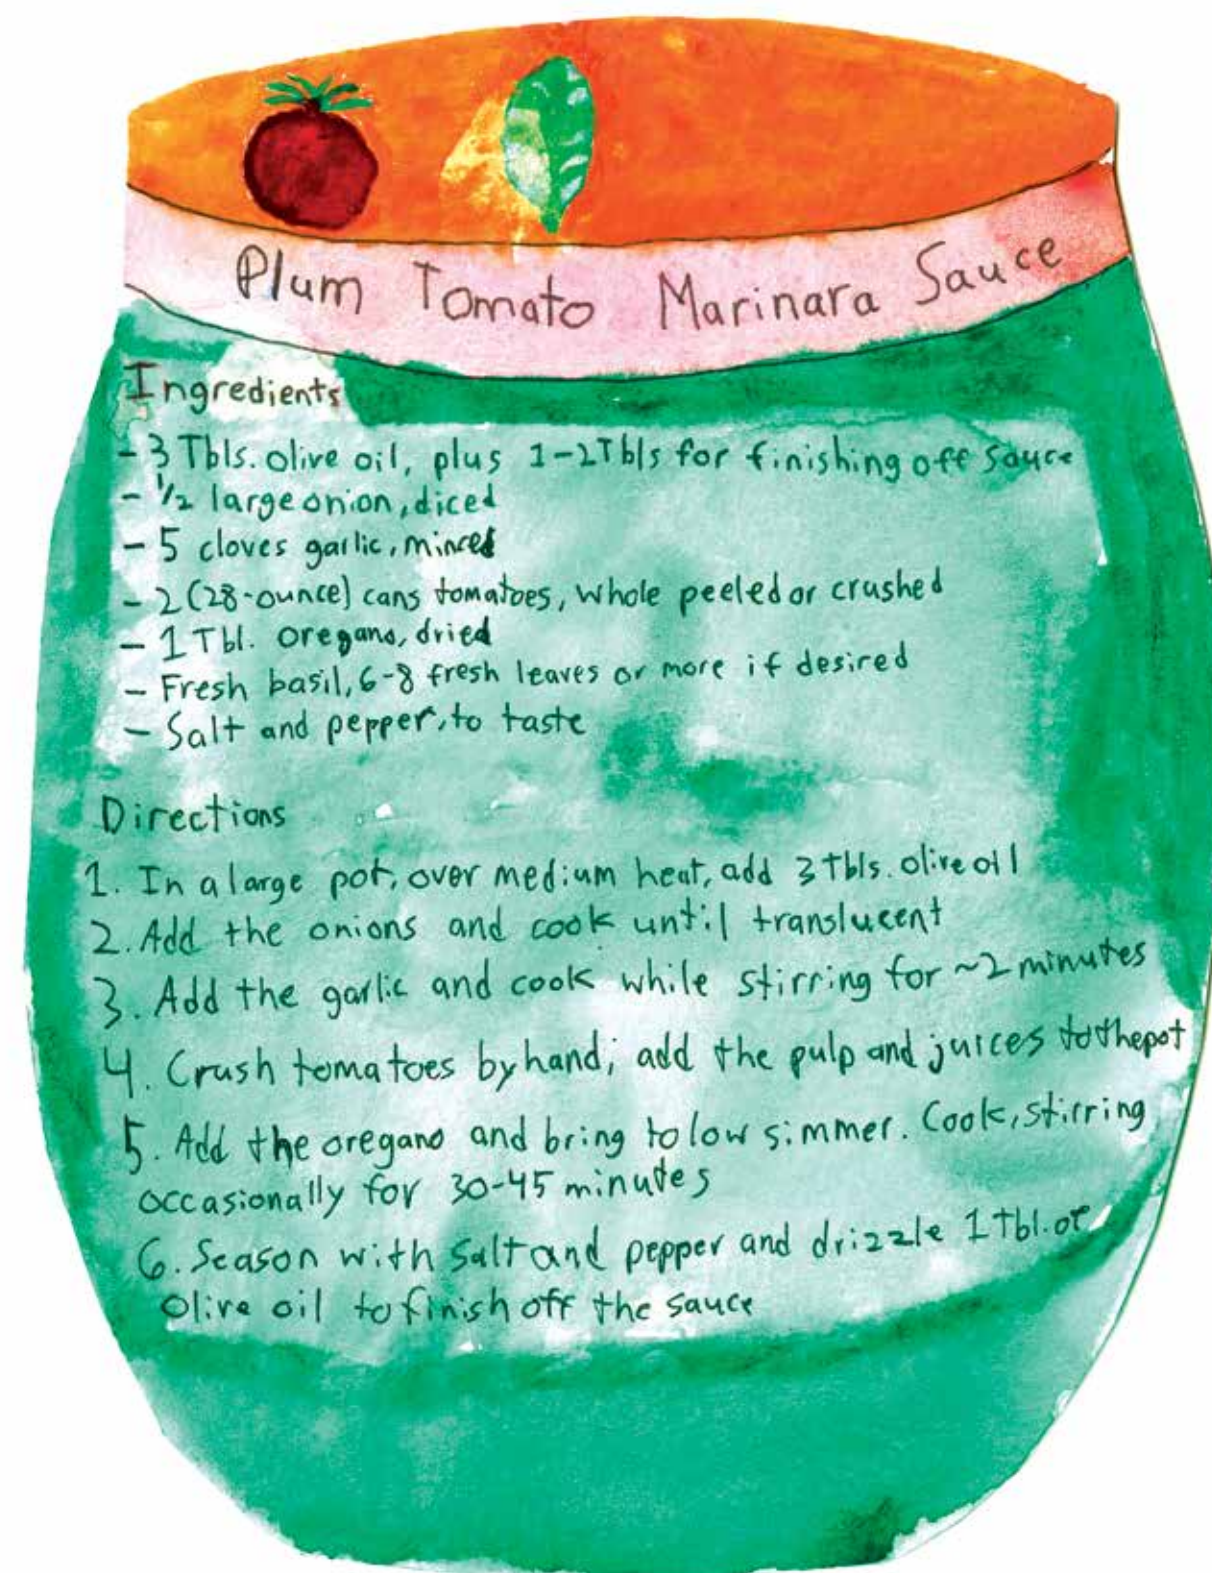 Plum Tomato Marinara Sauce
Ingredients
- 3 Tbls. olive oil, plus 1-2Tbls for finishing off sauce
- 1/2 large onion, diced
- 5 cloves garlic, minced
- 2 (28-ounce) cans tomatoes, whole peeled or crushed
- 1 Tbl. oregano, dried
- Fresh basil, 6-8 fresh leaves or more if desired
- Salt and pepper, to taste
Directions
1. In a large pot, over medium heat, add 3 Tbls. olive oil
2. Add the onions and cook until translucent
3. Add the garlic and cook while stirring for ~2 minutes
4. Crush tomatoes by hand; add the pulp and juices to the pot
5. Add the oregano and bring to low simmer. Cook, stirring
occasionally for 30-45 minutes
6. Season with salt and pepper and drizzle 1 Tbl. of
olive oil to finish off the sauce